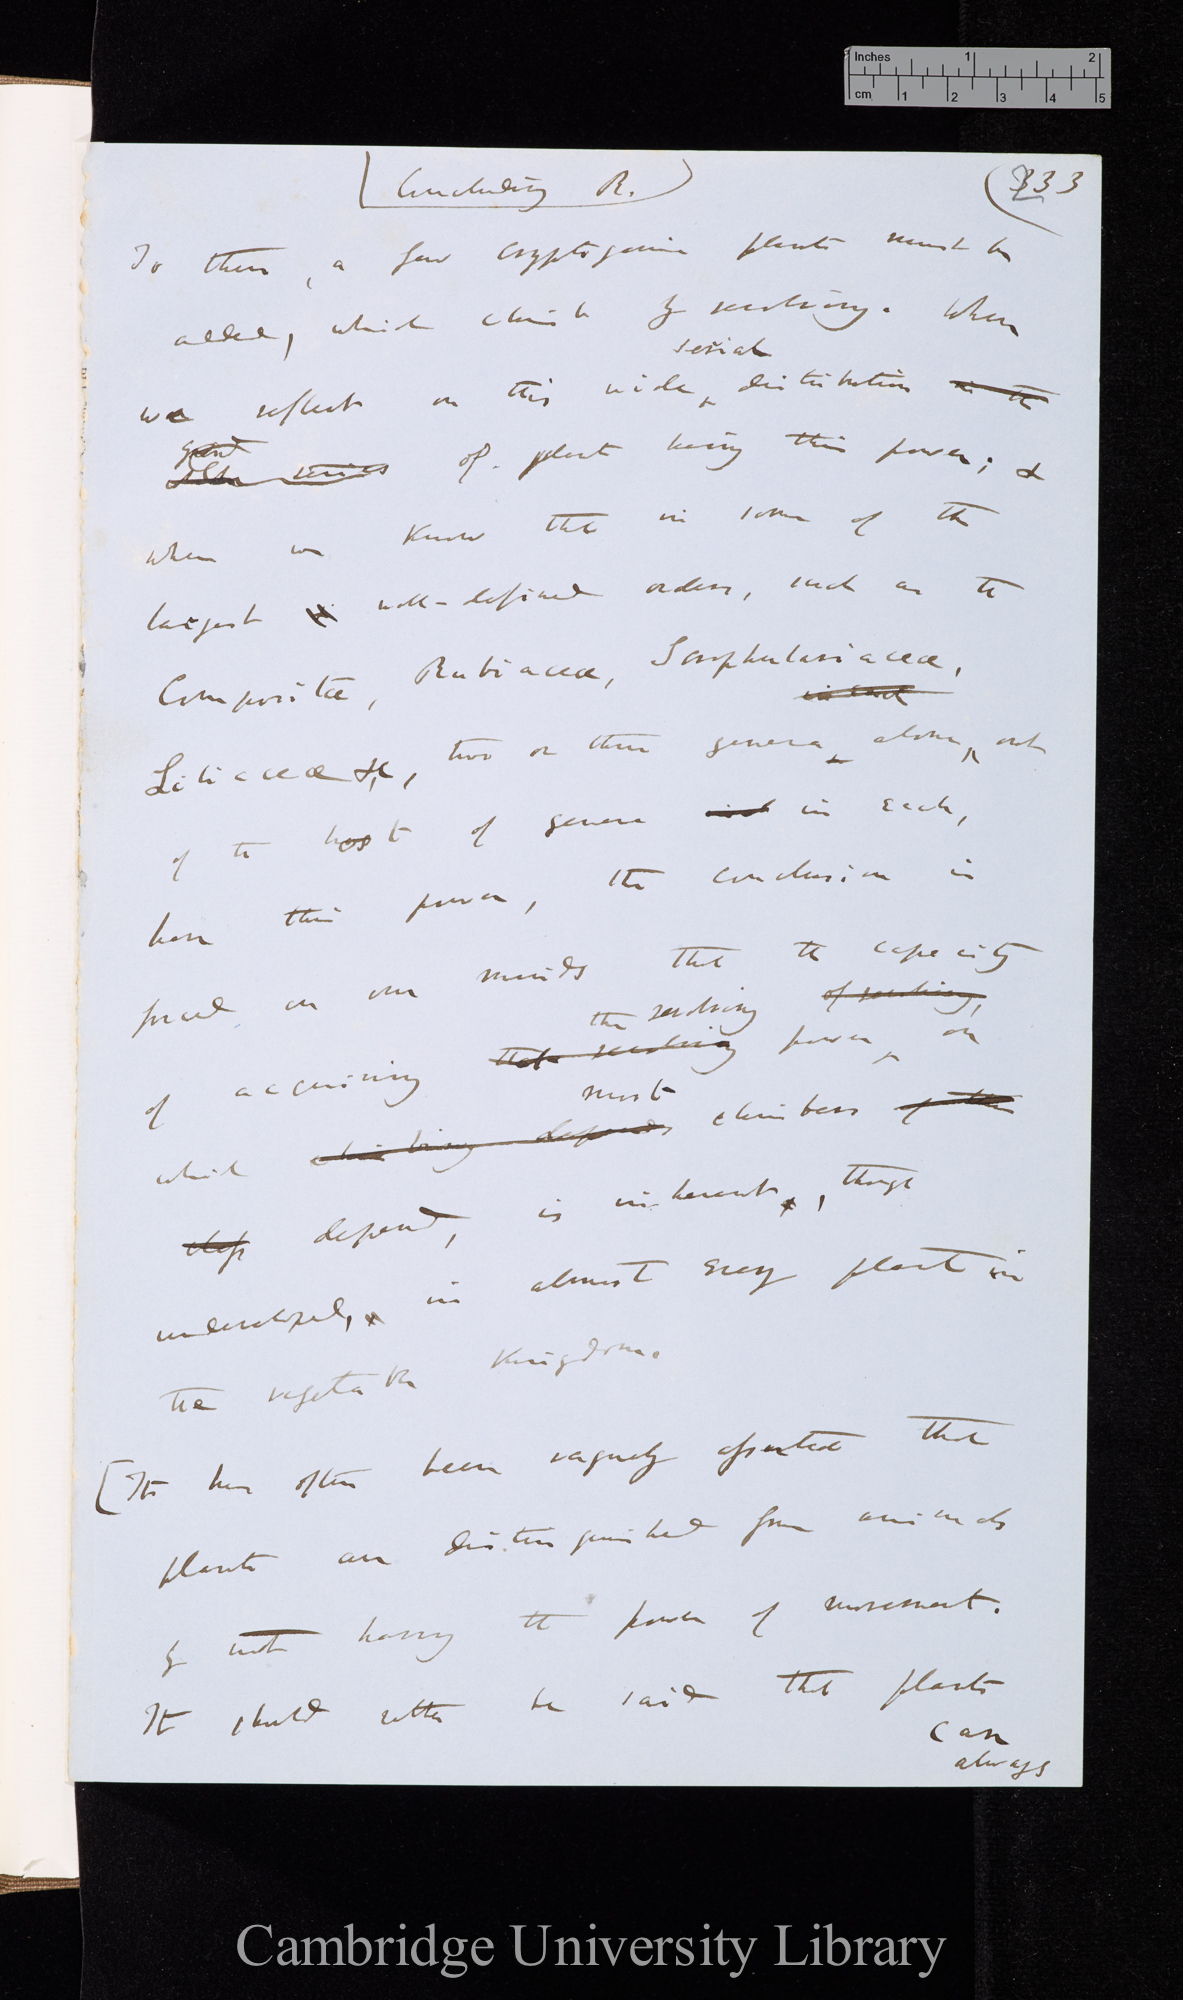 Inches 1 2
cm 1 2 3 4 5
Concluding R.
333
To these, a few cryptogamic plants must be
added, which climb by revolving. When
serial
we reflect on this wide distribution in the
great
series of plants having this power; &
when we know that in some of the
largest well-defined orders, such as the
Compositæ, Rubiaceæ, Scrophulariaceæ,
in each
Liliaceæ &c, two or three genera alone, out
of the host of genera in each,
have this power, the conclusion is
forced on our minds that the capacity
the revolving of revolving,
of acquiring that revolving power, on
most
which climbing depends climbers of the
depend, is inherent, though
undeveloped, in almost every plant in
the vegetable Kingdom.
[It has often been vaguely asserted that
plants are distinguished from animals
by not having the power of movement.
It should rather be said that plants
can
always
Cambridge University Library